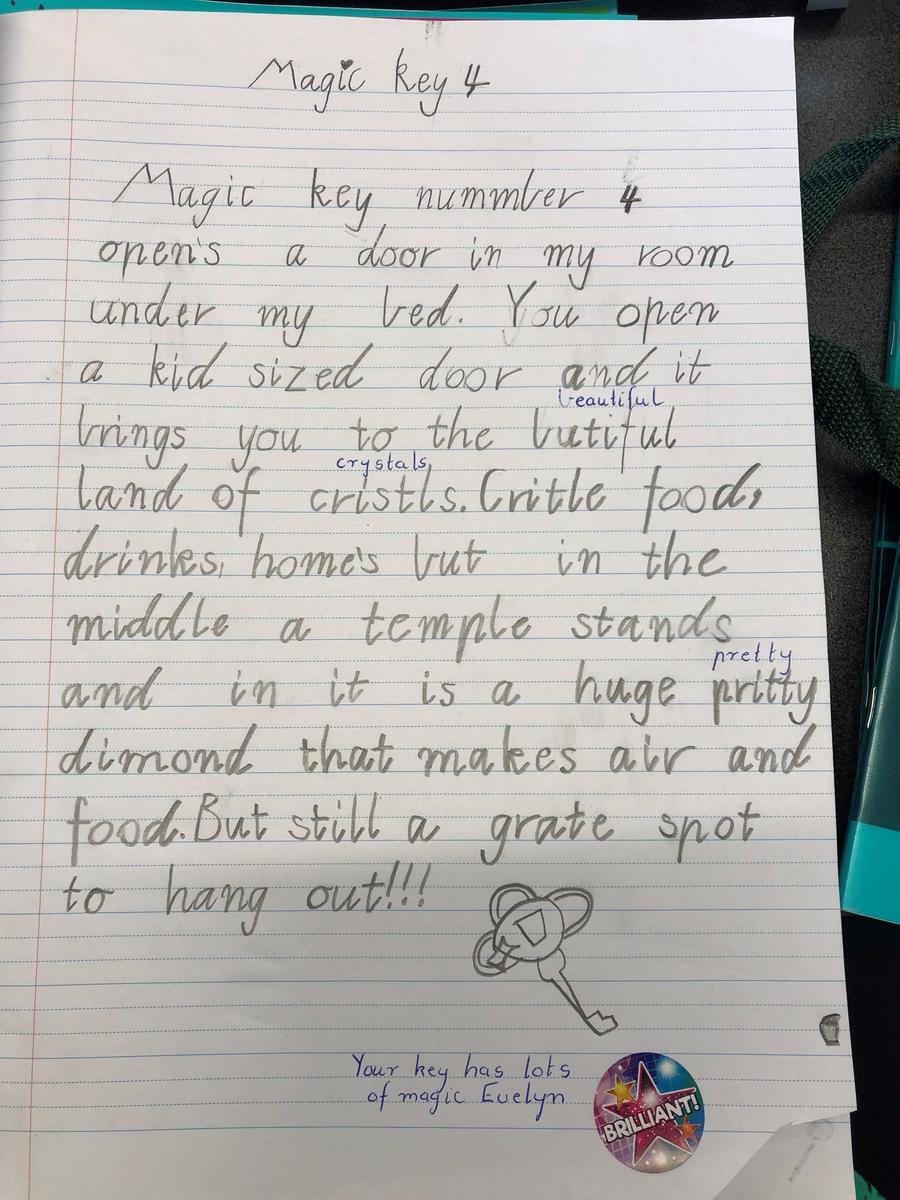 Magic key 4
Magic key nummber 4
open's a door in my room
under my bed. You open
a kid sized door and it
beautiful
brings you to the butiful
crystals
land of cristls. Critle food,
drinks, home's but in the
middle a temple stands
pretty
and in it is a huge pritty
dimond that makes air and
food. But still a grate spot
to hang out!!!
Your key has lots
of magic Evelyn
BRILLIANT!